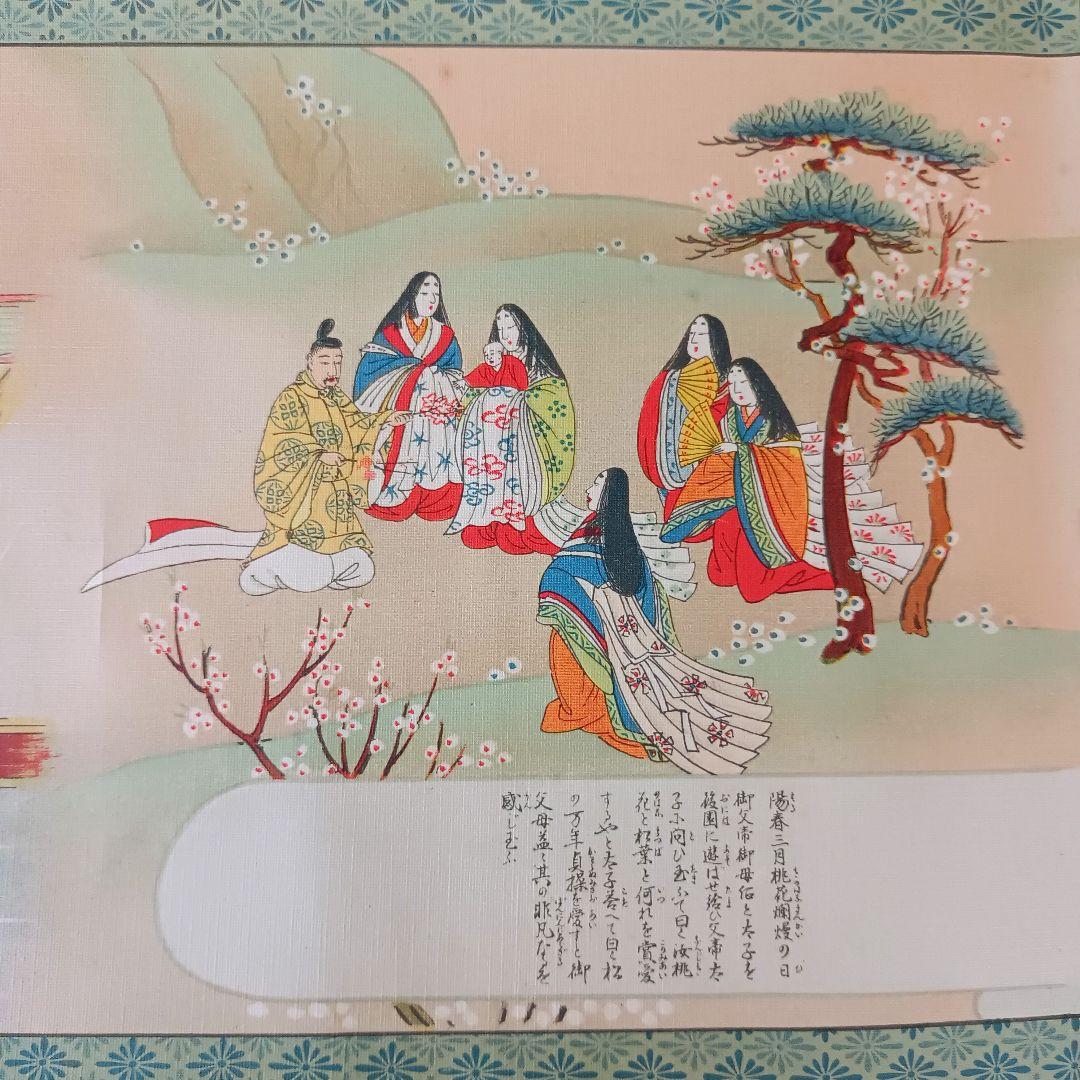 陽春三月桃花爛熳の日
御父帝御母后と太子を
後園に遊はせ給ひ父帝太
子に問ひ玉ふて曰く汝桃
花と松葉と何れを賞愛
するやと太子答へて曰く松
の万年貞操を愛すと御
父母益〻其の非凡なるを
感じ玉ふ